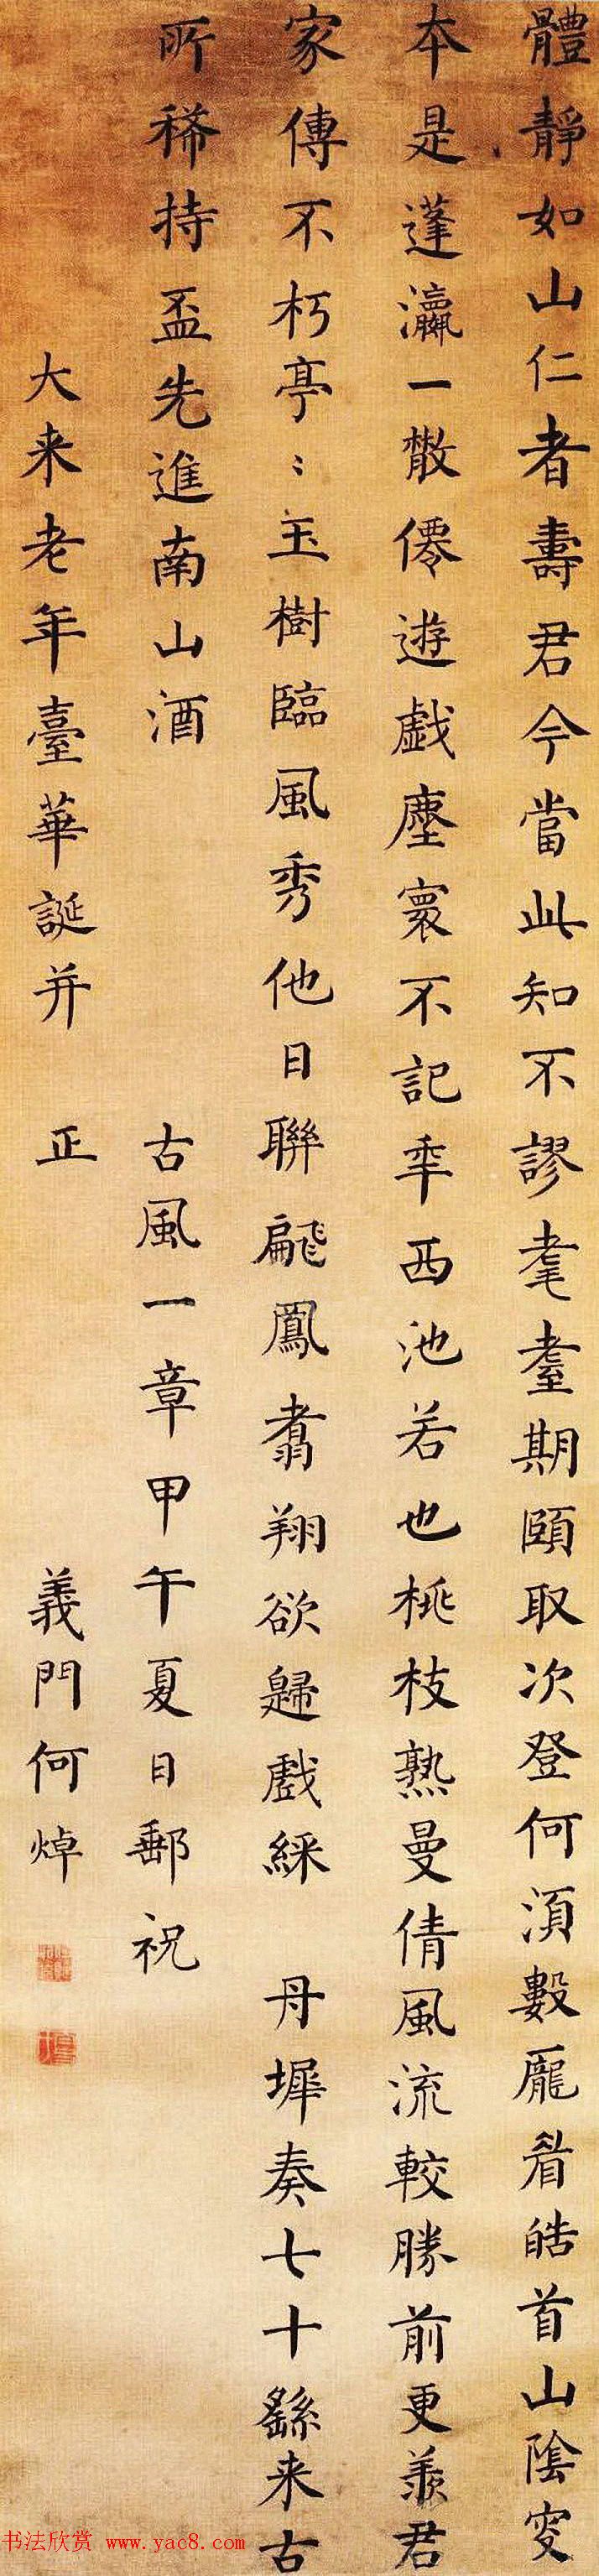 體靜如山仁者壽君今當此知不謬耄耋期頤取次登何須數龐眉皓首山陰叟
本是蓬瀛一散僊遊戲塵寰不記年西池若也桃枝熟曼倩風流較勝前更羨君
家傳不朽亭〻玉樹臨風秀他日聯翩鳳翥翔欲歸戲綵 丹墀奏七十繇来古
所稀持盃先進南山酒
古風一章甲午夏日郵祝
大来老年臺華誕并 正
義門何焯
书法欣赏 www.yac8.com